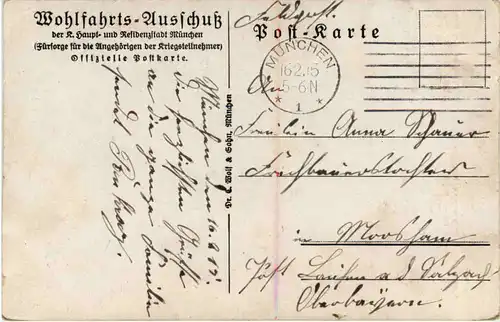 Wohlfahrts-Ausschuß
der K. Haupt- und Residenzstadt München
(Fürsorge für die Angehörigen der Kriegsteilnehmer)
Offizielle Postkarte.
München den 16.2.15.
Die herzlichsten Grüße
an die ganze Familie
sendet
Dr. C. Wolf & Sohn, München
Feldpost.
Post-Karte
MÜNCHEN
16.2.15
5-6N
* 1 *
An
Fräulein Anna Schauer
in Moosham
Post Laufen a d Salzach
Oberbayern.